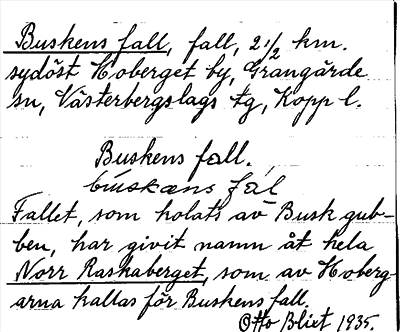 Buskens fall, fall, 2 1/2 km.
sydöst Hoberget by, Grangärde
sn, Västerbergslags tg, Kopp l.
Buskens fall.
búskæns fál
Fallet, som holats av Busk gub-
ben, har givit namn åt hela
Norr Raskaberget, som av Hoberg-
arna kallas för Buskens fall.
Otto Blixt 1935.